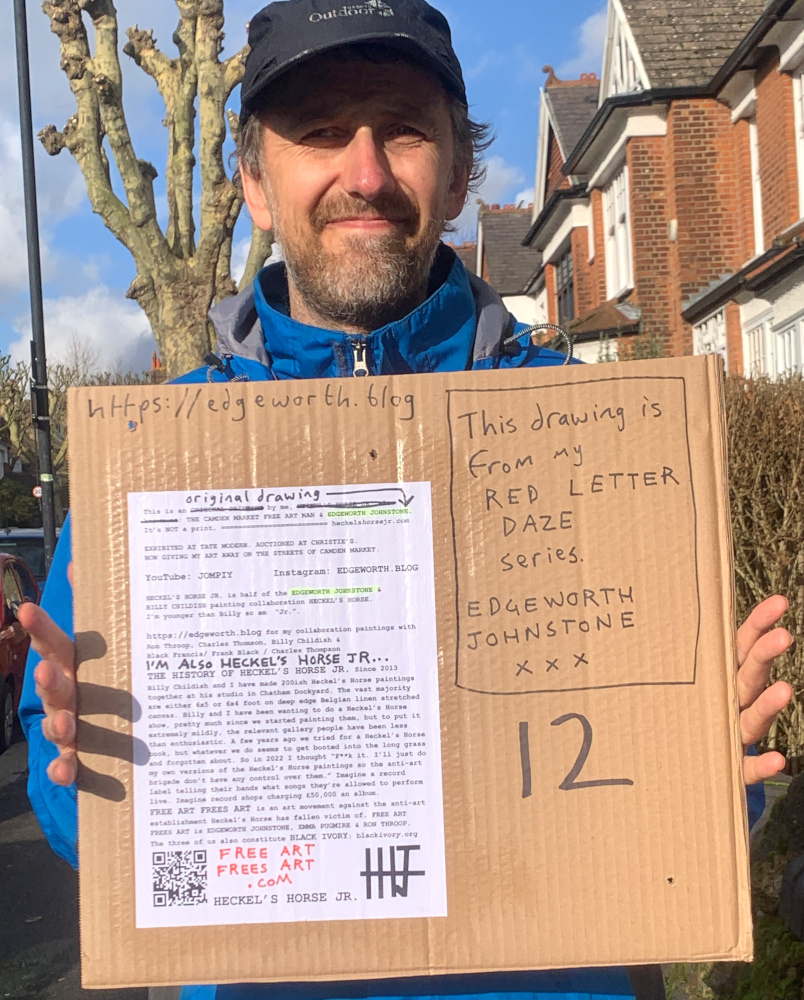 Outdoor
https://edgeworth.blog
original drawing
This is an ORIGINAL PAINTING by me,
THE CAMDEN MARKET FREE ART MAN & EDGEWORTH JOHNSTONE.
It's NOT a print. heckelshorsejr.com
EXHIBITED AT TATE MODERN. AUCTIONED AT CHRISTIE'S.
NOW GIVING MY ART AWAY ON THE STREETS OF CAMDEN MARKET.
YouTube: JOMPIY Instagram: EDGEWORTH.BLOG
HECKEL'S HORSE JR. is half of the EDGEWORTH JOHNSTONE &
BILLY CHILDISH painting collaboration HECKEL'S HORSE.
I'm younger than Billy so am "Jr.".
https://edgeworth.blog for my collaboration paintings with
Ron Throop, Charles Thomson, Billy Childish &
Black Francis/ Frank Black / Charles Thompson
I'M ALSO HECKEL'S HORSE JR...
THE HISTORY OF HECKEL'S HORSE JR. Since 2013
Billy Childish and I have made 200ish Heckel's Horse paintings
together at his studio in Chatham Dockyard. The vast majority
are either 6x5 or 6x4 foot on deep edge Belgian linen stretched
canvas. Billy and I have been wanting to do a Heckel's Horse
show, pretty much since we started painting them, but to put it
extremely mildly, the relevant gallery people have been less
than enthusiastic. A few years ago we tried for a Heckel's Horse
book, but whatever we do seems to get booted into the long grass
and forgotten about. So in 2022 I thought "F**k it. I'll just do
my own versions of the Heckel's Horse paintings so the anti-art
brigade don't have any control over them." Imagine a record
label telling their bands what songs they're allowed to perform
live. Imagine record shops charging £50,000 an album.
FREE ART FREES ART is an art movement against the anti-art
establishment Heckel's Horse has fallen victim of. FREE ART
FREES ART is EDGEWORTH JOHNSTONE, EMMA PUGMIRE & RON THROOP.
The three of us also constitute BLACK IVORY: blackivory.org
FREE ART
FREES ART
.COM
HECKEL'S HORSE JR.
This drawing is
from my
RED LETTER
DAZE
series.
EDGEWORTH
JOHNSTONE
x x x
12